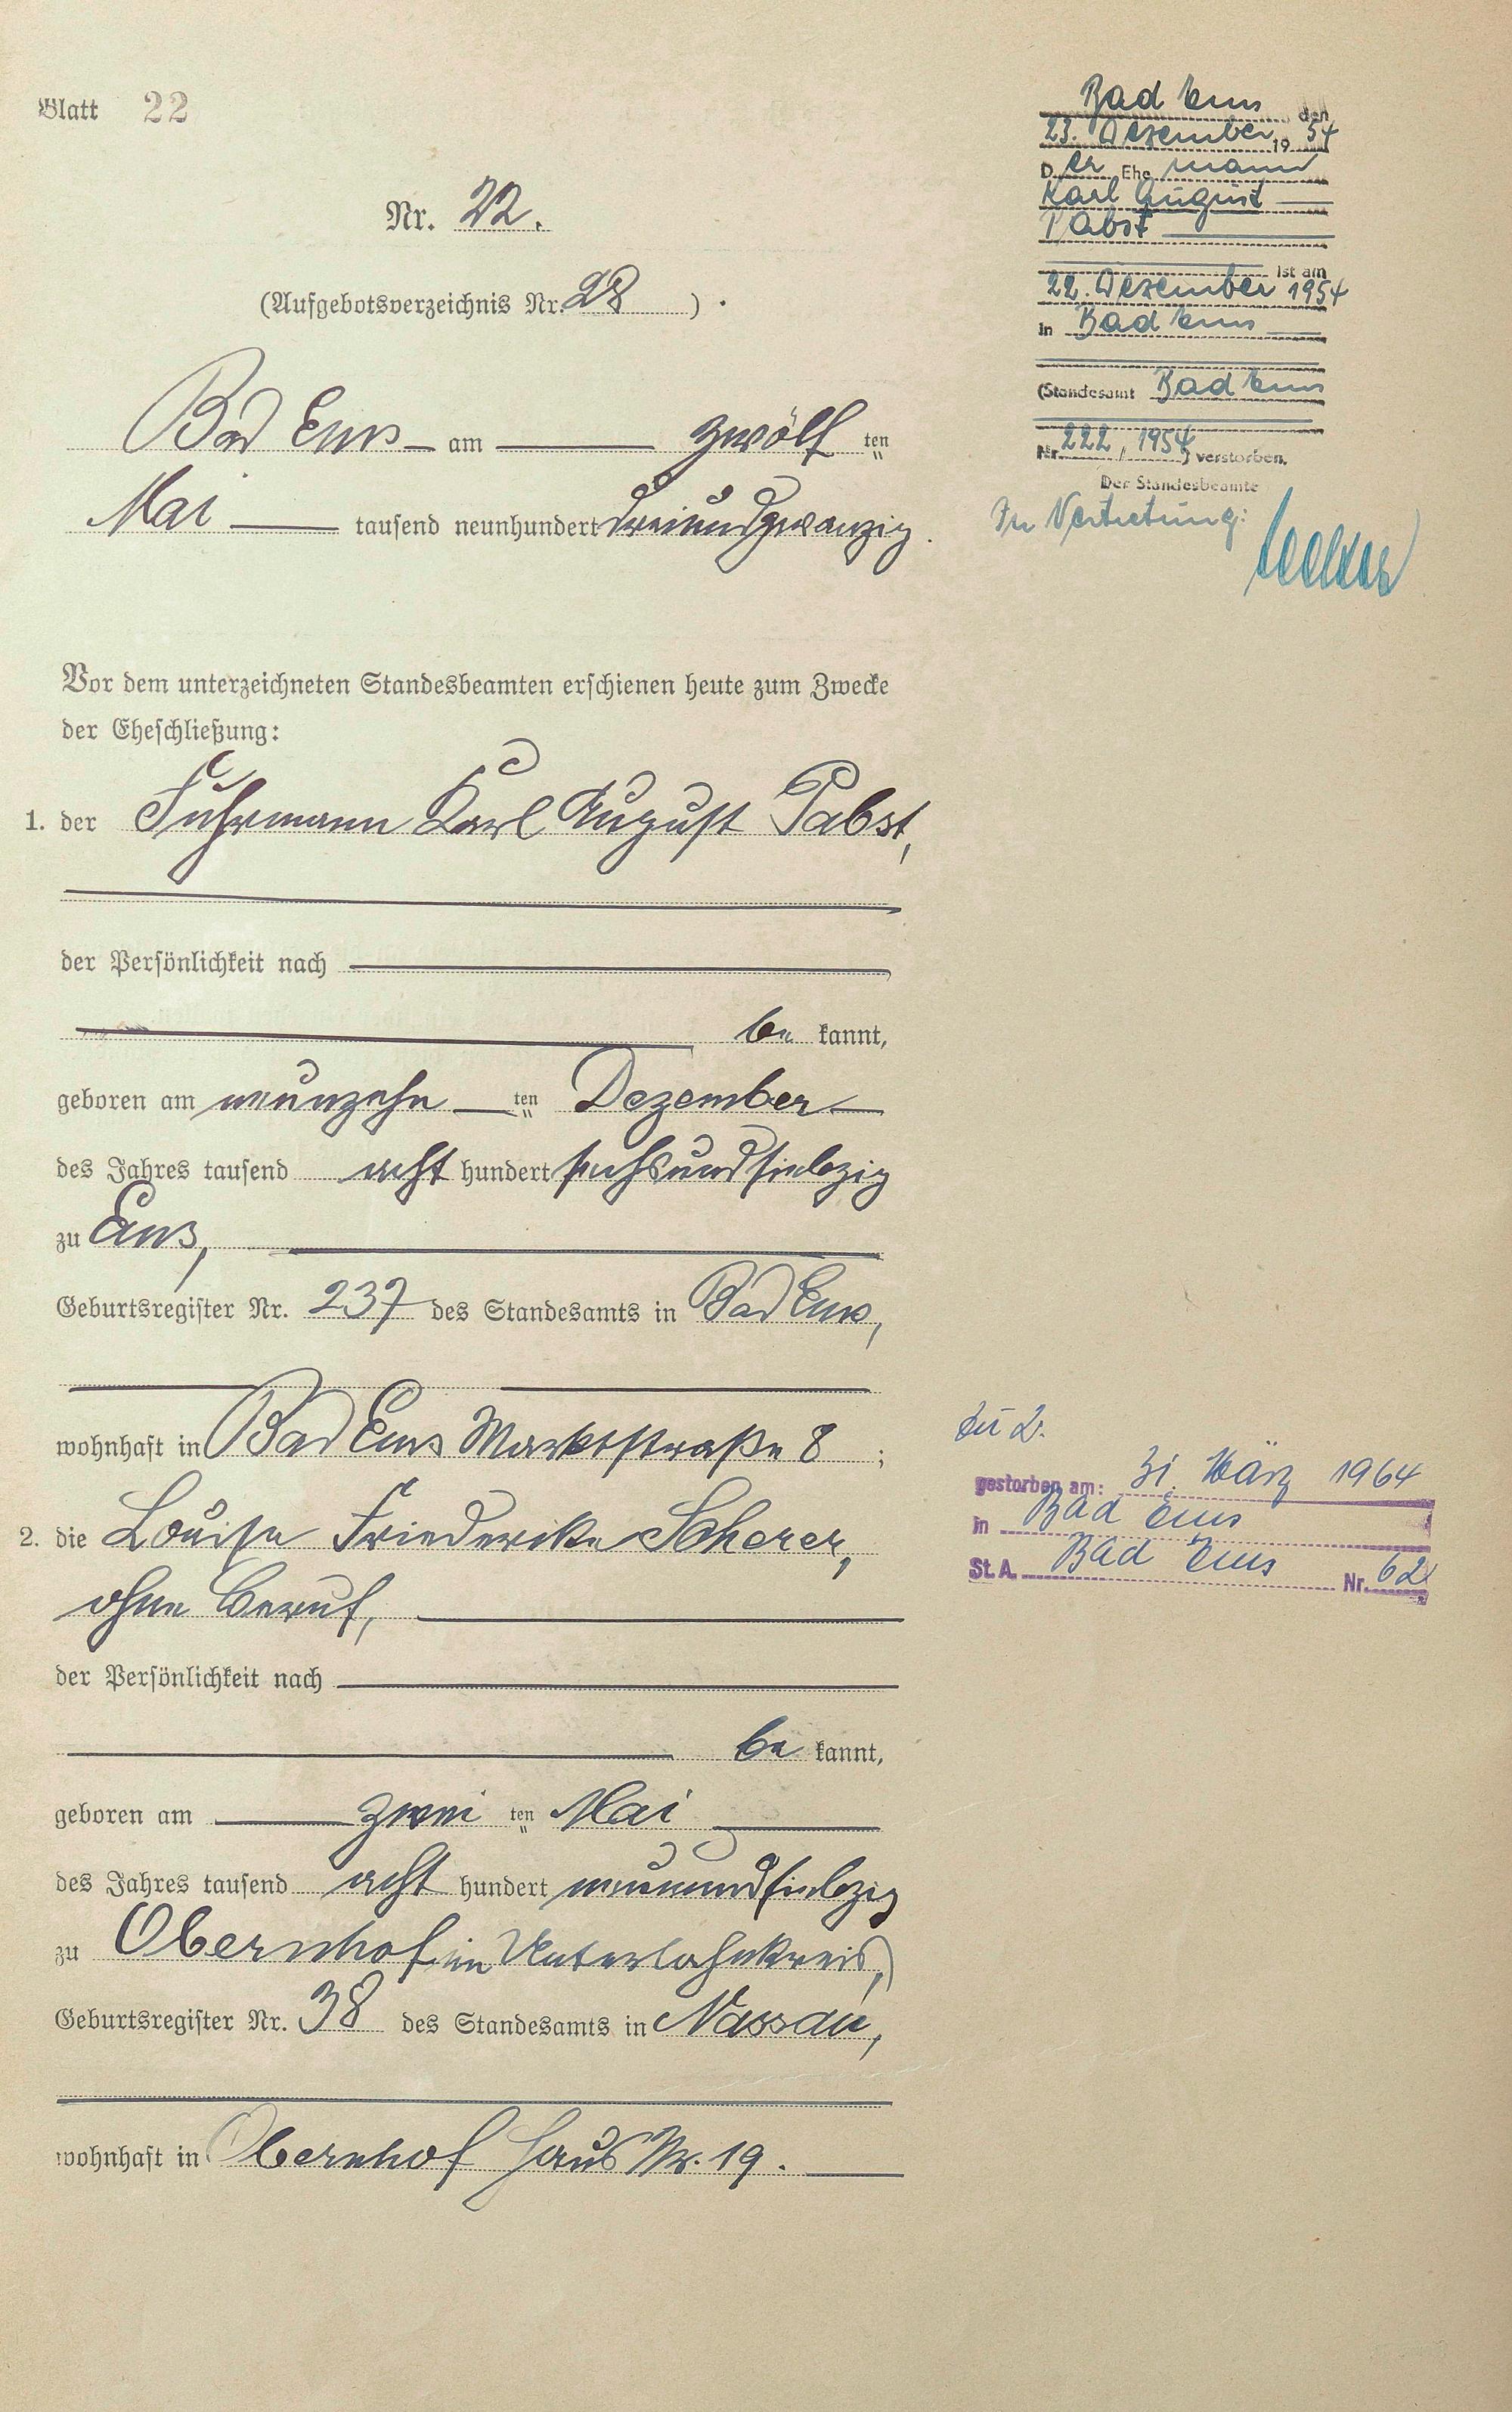 Blatt 22
Nr. 22.
(Aufgebotsverzeichnis Nr. 28 ) .
Bad Ems — am — zwölf ten
Mai — tausend neunhundert dreiundzwanzig.
Vor dem unterzeichneten Standesbeamten erschienen heute zum Zwecke
der Eheschließung:
1. der Fuhrmann Karl August Pabst,
der Persönlichkeit nach —
— be kannt,
geboren am neunzehn — ten Dezember —
des Jahres tausend acht hundert sechsundsiebzig
zu Ems, —
Geburtsregister Nr. 237 des Standesamts in Bad Ems,
wohnhaft in Bad Ems Marktstraße 8 ;
2. die Louise Friederike Scherer,
ohne Beruf, —
der Persönlichkeit nach —
— be kannt,
geboren am — zwei ten Mai —
des Jahres tausend acht hundert neunundsiebzig
zu Obernhof im Unterlahnkreis,
Geburtsregister Nr. 38 des Standesamts in Nassau,
wohnhaft in Obernhof Haus Nr. 19. —
Bad Ems den
23. Dezember 19 54
D er Ehe mann
Karl August —
Pabst —
ist am
22. Dezember 1954
in Bad Ems —
(Standesamt Bad Ems
Nr. 222, 1954) verstorben.
Der Standesbeamte
In Vertretung:
Zu 2.
gestorben am: 31. März 1964
in Bad Ems
St. A. Bad Ems Nr. 62